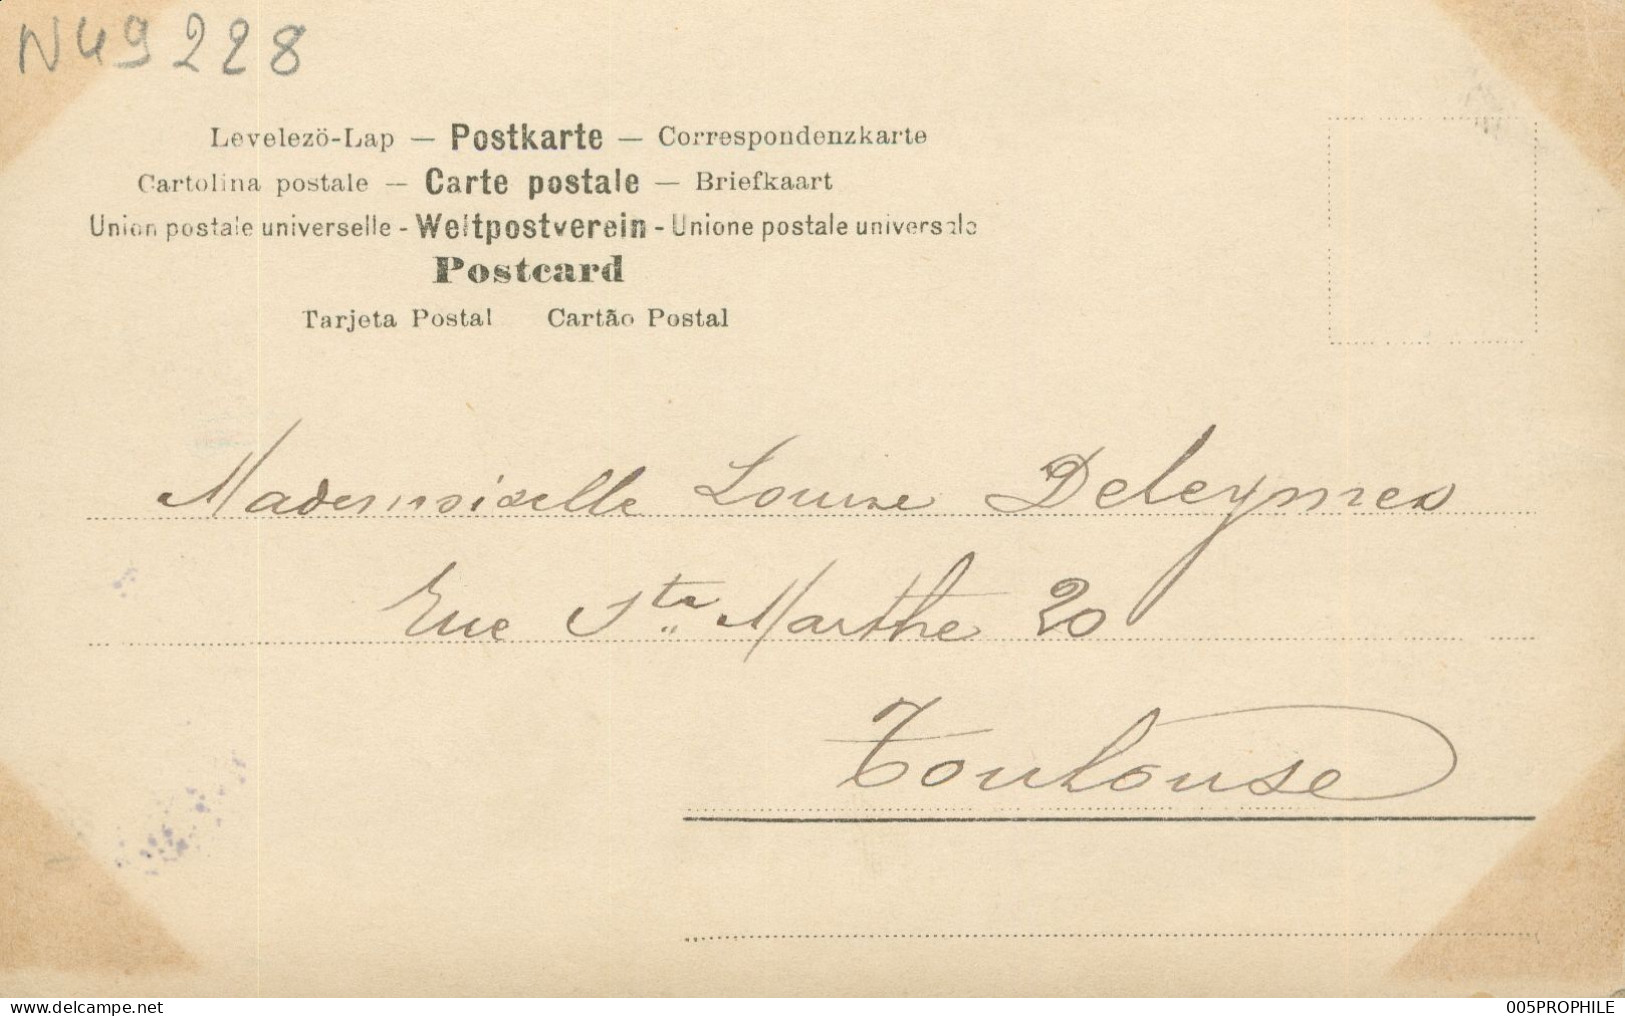 N49228
Levelezö-Lap — Postkarte — Correspondenzkarte
Cartolina postale — Carte postale — Briefkaart
Union postale universelle - Weltpostverein - Unione postale universale
Postcard
Tarjeta Postal Cartão Postal
Mademoiselle Louise Deleymes
Rue Ste Marthe 20
Toulouse
www.delcampe.net
005PROPHILE